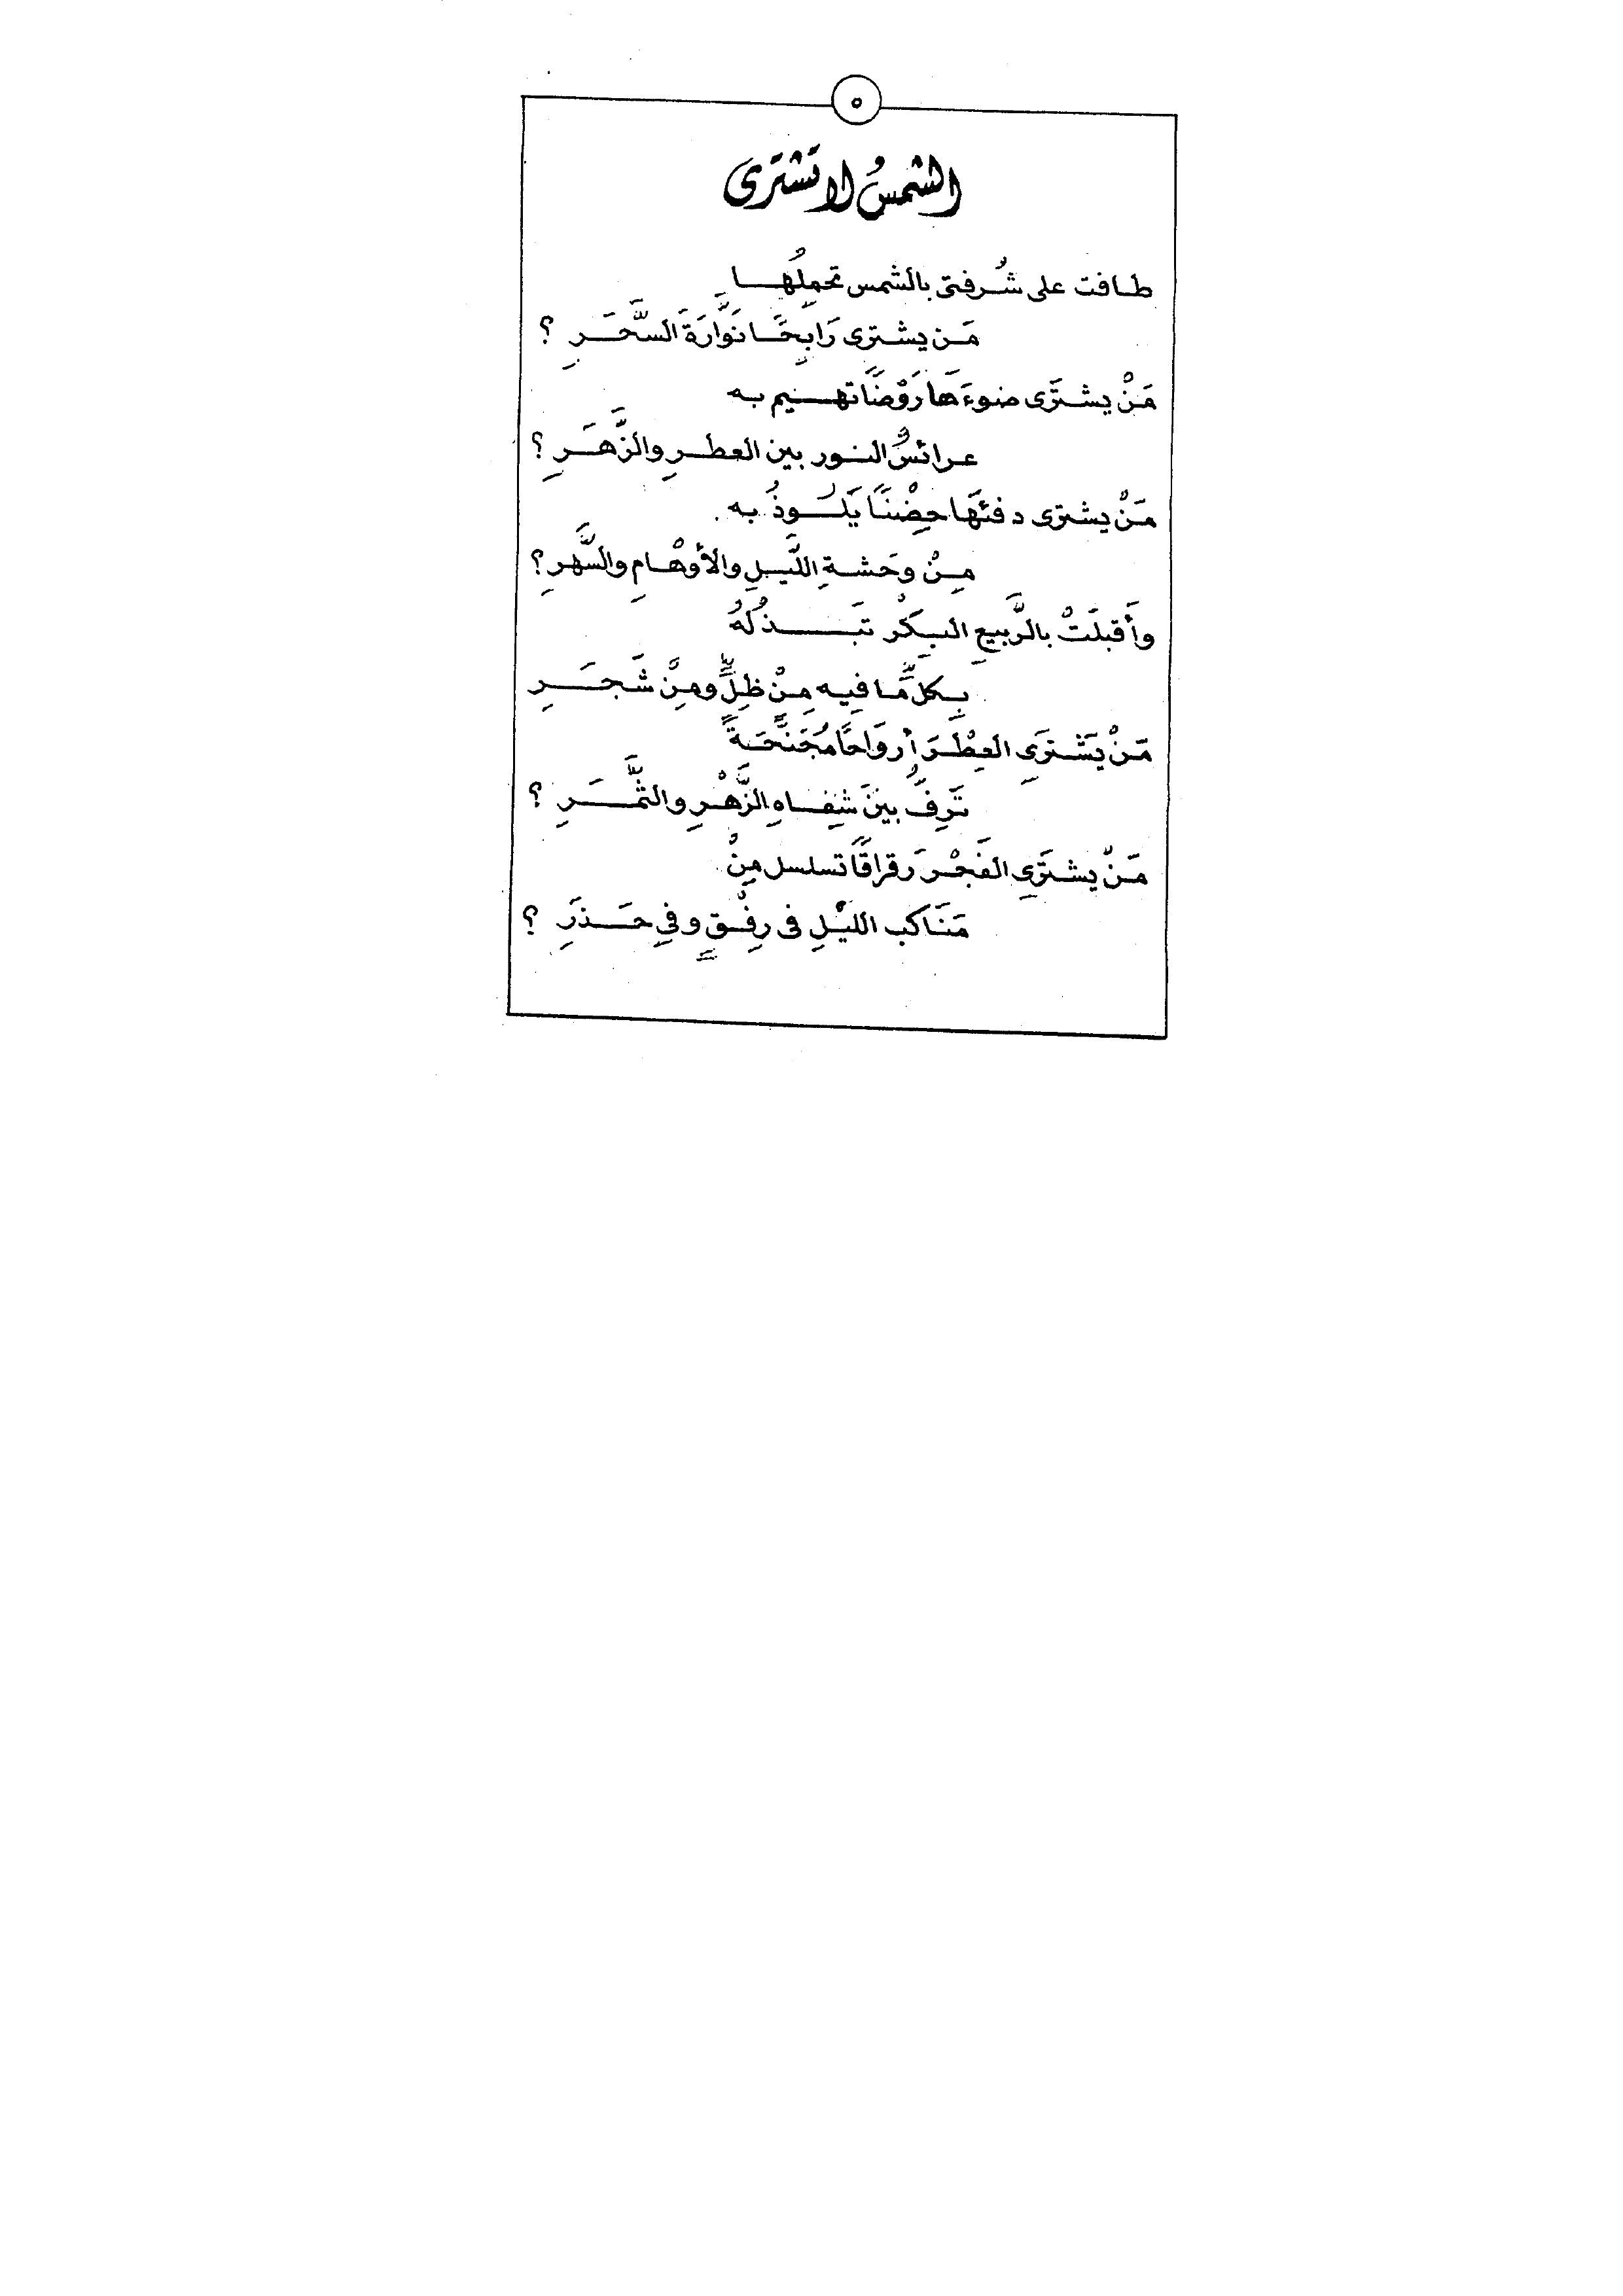 ٥
الشمسُ لا تشترى
طافت على شُرفتى بالشمس تحملُها
مَن يشترى رَابحًا نَوَّارَةَ السَّحَرِ ؟
مَنْ يشترَى ضوءَهَا رَوْضًا تهيم به
عرائسُ النور بين العطرِ والزَّهَرِ ؟
مَنْ يشترى دفئَهَا حِضْنًا يَلُوذُ به
مِنْ وحَشةِ اللَّيلِ والأوْهامِ والسَّهرِ ؟
وأَقبلَتْ بالرَّبيعِ البِكْر تَبذُلُهُ
بِكلِّ مَا فِيه مِنْ ظِلٍّ ومِنْ شَجَرِ
مَنْ يَشْترَىِ العِطْرَ أرواحًا مُجَنَّحَةً
تَرِفُّ بينَ شِفاهِ الزَّهْرِ والثَّمَرِ ؟
مَنْ يشترَىِ الفَجْرَ رقراقًا تسلسل مِنْ
مَنَاكب الليْلِ فى رِفْقٍ وفىِ حَذَرِ ؟